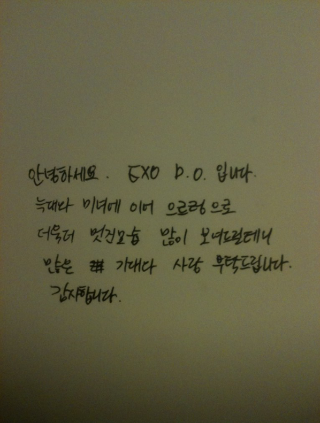 안녕하세요. EXO D.O. 입니다.
늑대와 미녀에 이어 으르렁으로
더욱더 멋진모습 많이 보여드릴테니
많은 # 기대와 사랑 부탁드립니다.
감사합니다.